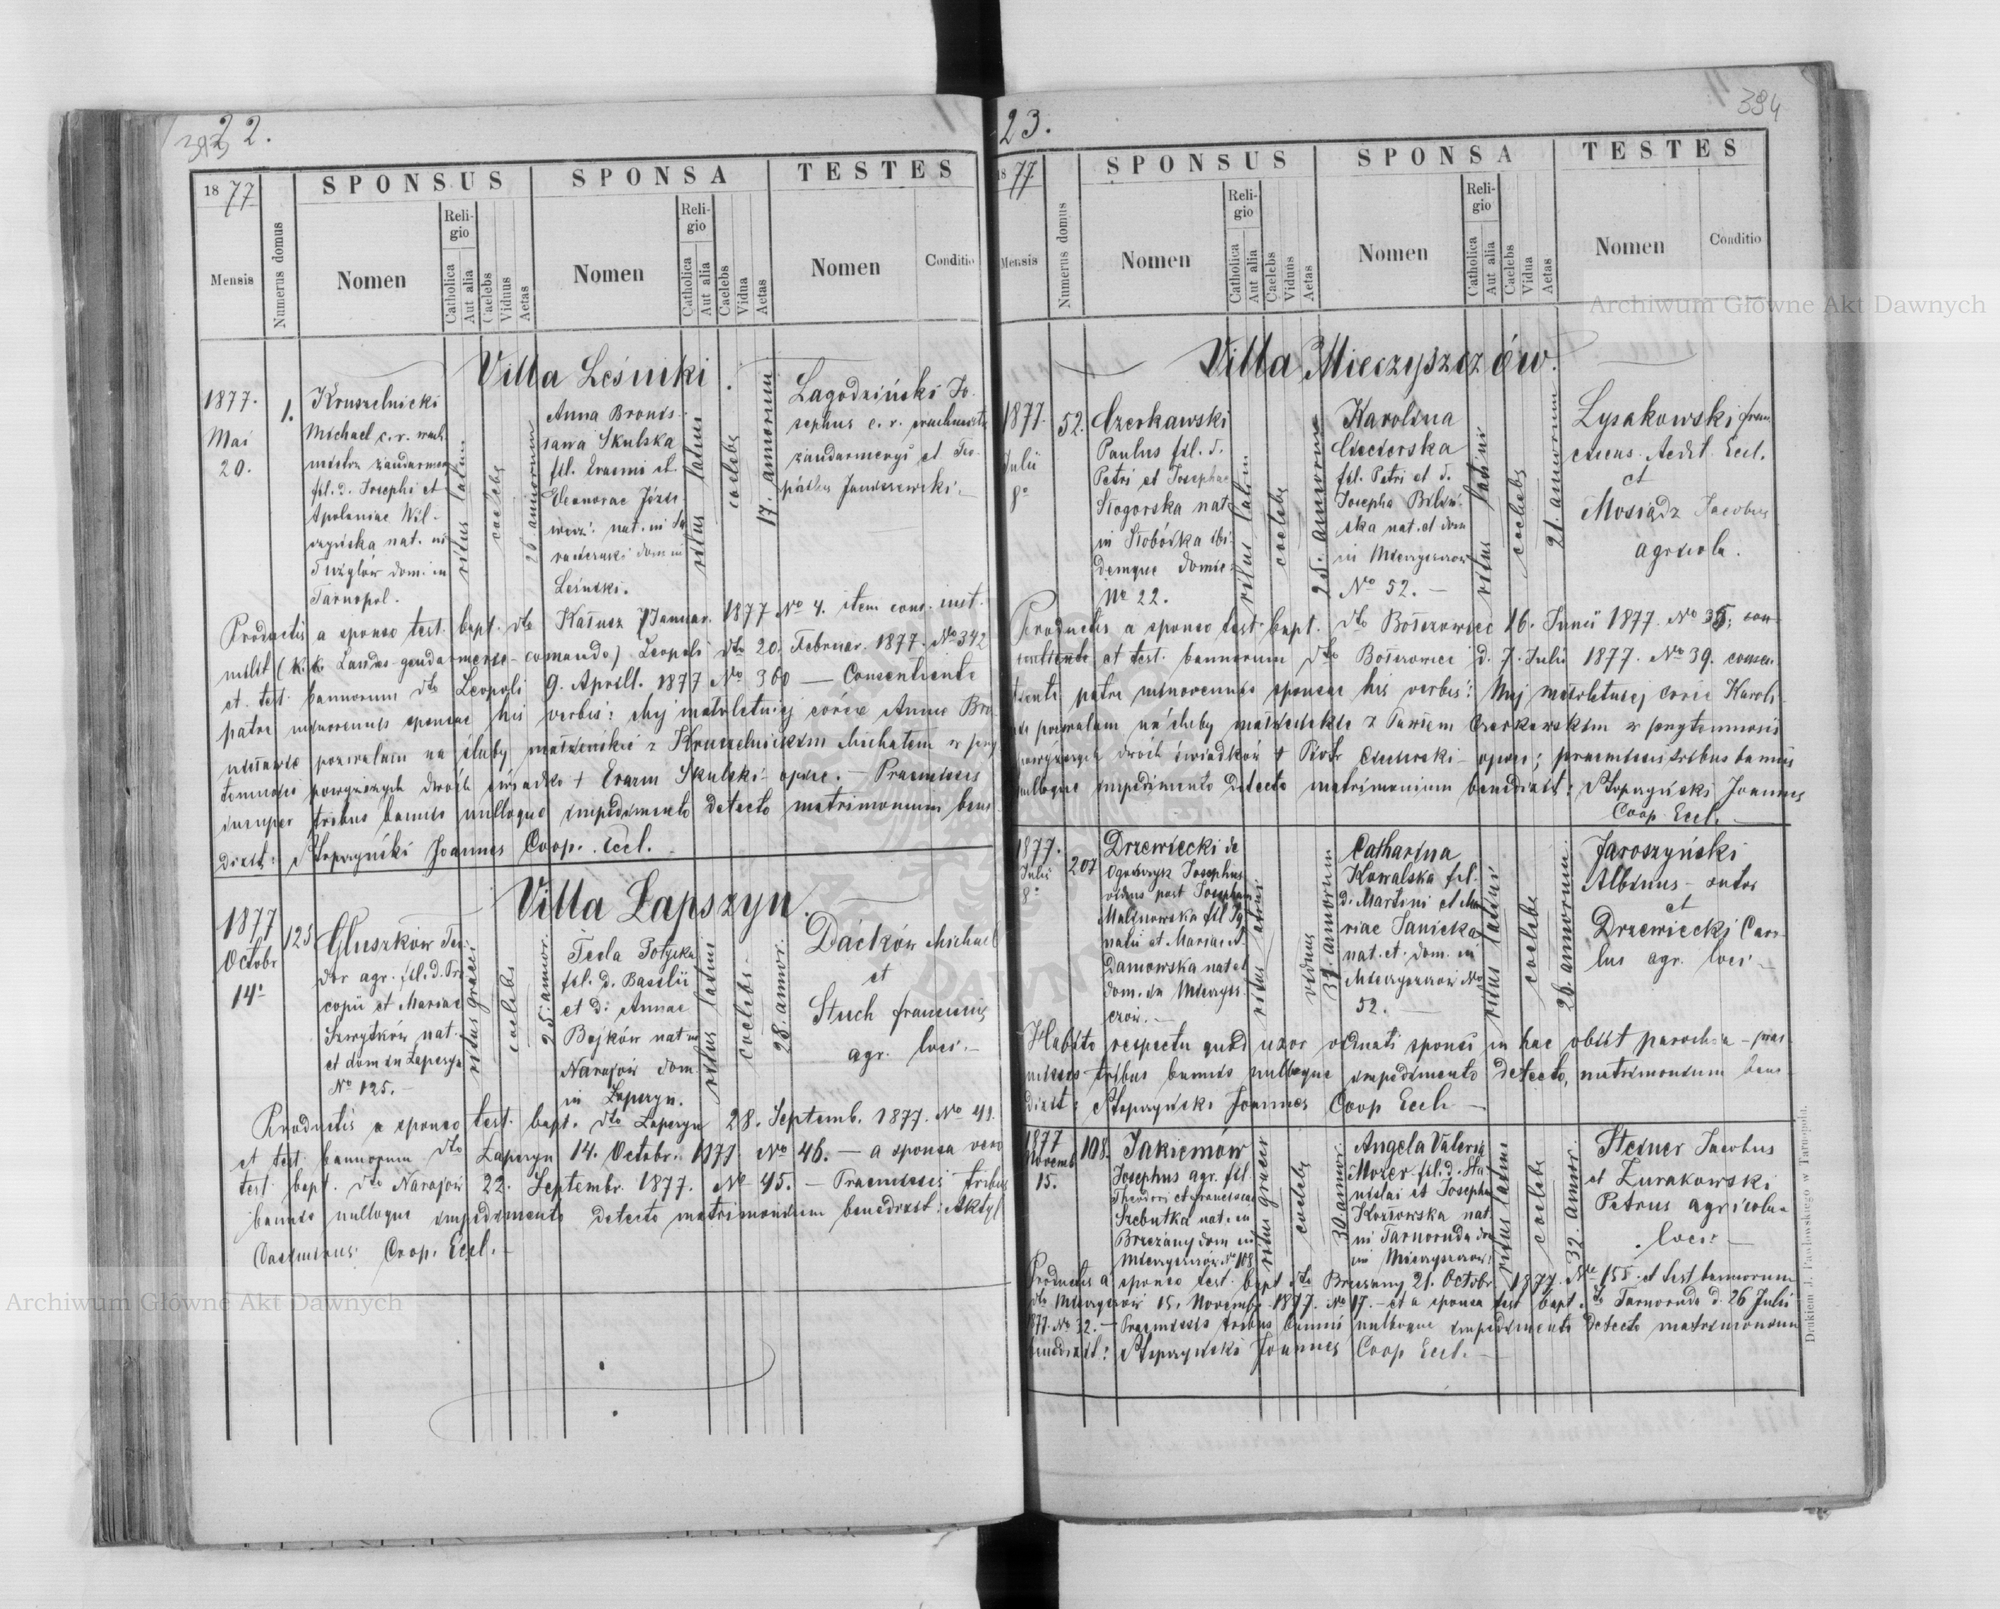 22.
393
1877
SPONSUS
SPONSA
TESTES
Mensis
Numerus domus
Nomen
Religio
Catholica
Aut alia
Caelebs
Viduus
Aetas
Nomen
Religio
Catholica
Aut alia
Caelebs
Vidua
Aetas
Nomen
Conditio
Villa Leśniki.
1877.
Mai
20.
1.
Kruszelnicki
Michael c. r.
fil. d. Josephi et
Apoloniae Wil-
czyńska nat. in
dom. in
Tarnopol.
ritus latini
coelebs
25 annorum
Anna Bronis-
sawa Skulska
fil. Erasmi et
Eleonorae
nat. in
dom in
Leśniki.
ritus latini
coelebs
17. annorum
Lagodziński Jo-
sephus c. r.
et
Janiszewski.
Productis a sponso test. bapt. dto Kałusz 7 Januar. 1877 No 4. item cons. inst.
milit (k. k. Landes-gendarmerie-comando) Leopoli dto 20. Februar. 1877. No 342
et test. bannorum dto Leopoli 9. Aprill. 1877 No 360 — Consentiente
patre minorennis sponsae his verbis: Mej małoletniej córce Annie Bro-
nisławie pozwalam na śluby małżeńskie z Kruszelnickim Michałem w przy-
tomności powyższych dwóch świadków + Erazm Skulski - ojciec. — Praemissis
insuper tribus bannis nulloque impedimento detecto matrimonium bene-
dixit: Stopczyński Joannes Coop. Eccl.
Villa Łapszyn.
1877
Octobr
14.
125
Głuszków
agr. fil. d. Pro-
copii et Mariae
nat.
et dom in Łapszyn
No 125.
ritus graeci
coelebs
25. annor.
Tecla Potycka
fil. d. Basilii
et d. Annae
Bojków nat in
Narajow dom
in Łapszyn.
ritus latini
coelebs
28 annor.
Daćków Michael
et
Stuch franciscus
agr. loci.
Productis a sponso test. bapt. dto Łapszyn 28. Septemb. 1877. No 41.
et test. bannorum dto Łapszyn 14. Octobr. 1877 No 46. — a sponsa vero
test bapt. dto Narajow 22. Septembr. 1877. No 45. — Praemissis tribus
bannis nulloque impedimento detecto matrimonium benedixit:
Casimirus Coop. Eccl.
23.
394
1877
SPONSUS
SPONSA
TESTES
Mensis
Numerus domus
Nomen
Religio
Catholica
Aut alia
Caelebs
Viduus
Aetas
Nomen
Religio
Catholica
Aut alia
Caelebs
Vidua
Aetas
Nomen
Conditio
Villa Mieczyszczów.
1877.
Julii
8.
52.
Czerkawski
Paulus fil. d.
Petri et Josephae
nat.
in Słobódka ibi-
demque domic.
No 22.
ritus latini
coelebs
25. annorum
Karolina
fil. Petri et d.
Josepha
nat. et dom
in Mieczyszczow
No 52. —
ritus latini
coelebs
21. annorum
Lysakowski fran-
ciscus Aedit. Eccl.
et
Mosiądz Jacobus
agricola.
Productis a sponso test. bapt. dto Bołszowiec 16. Junii 1877. No 35, con-
et test. bannorum dto Bołszowiec d. 7. Julii 1877. No 39. consen-
tiente patre minorennis sponsae his verbis: Mej małoletniej córce Karoli-
nie pozwalam na śluby małżeńskie z Pawłem Czerkawskim w przytomności
powyższych dwóch świadków + Piotr ojciec; praemissis tribus bannis
nulloque impedimento detecto matrimonium benedixit: Stopczyński Joannes
Coop. Eccl.
1877.
Julii
8.
207
Drzewiecki de
Josephus
viduus post Josepham
Malinowska fil Ig-
natii et Mariae A-
damowska nat et
dom. in Mieczysz-
czow. —
ritus latini
viduus
37. annorum
Catharina
Kowalska fil.
d. Martini et Ma-
riae Janicka
nat. et dom. in
Mieczyszczow No
52. —
ritus latini
coelebs
26. annorum.
Jaroszyński
Albinus - sutor
et
Drzewiecki Caro-
lus agr. loci
Habito respectu quod uxor viduati sponsi in hac obiit parochia — prae-
missis tribus bannis nulloque impedimento detecto, matrimonium bene-
dixit: Stopczyński Joannes Coop Eccl. —
1877
Novemb
15.
108.
Jakiemów
Josephus agr. fil.
Theodori et franciscae
Szebutka nat. in
Brzeżany dom in
Mieczyszczów No 108
ritus graeci
coelebs
30 annor.
Angela Valeria
Mozer fil. d. Sta-
nislai et Josepha
Kozłowska nat
in Tarnoruda dom
in Mieczyszczow.
ritus latini
coelebs
32. annor.
Steiner Jacobus
et Zurakowski
Petrus agricolae
loci. —
Productis a sponso test. bapt. dto Brzezany 21. Octobr 1877. No 155. et test bannorum
dto Mieczyszczow 15. Novemb. 1877. No 17. — et a sponsa test bapt. dto Tarnoruda d. 26 Julii
1877. No 32. — Praemissis tribus bannis nulloque impedimento detecto matrimonium
benedixit: Stopczyński Joannes Coop Eccl. —
Drukiem J. Pawłowskiego w Tarnopolu.
Archiwum Główne Akt Dawnych
Archiwum Główne Akt Dawnych